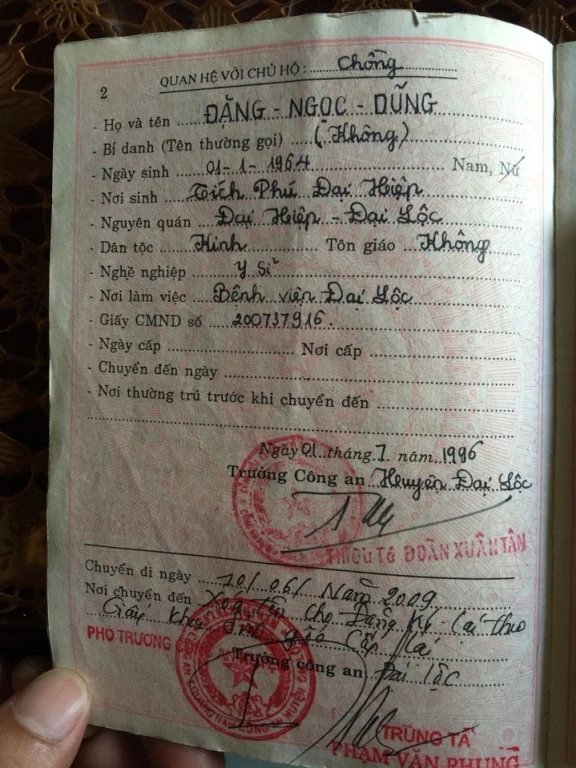 2
QUAN HỆ VỚI CHỦ HỘ: Chồng
- Họ và tên ĐẶNG - NGỌC - DŨNG
- Bí danh (Tên thường gọi) (Không)
- Ngày sinh 01-1-1964 Nam, Nữ
- Nơi sinh Tích Phú Đại Hiệp
- Nguyên quán Đại Hiệp - Đại Lộc
- Dân tộc Kinh Tôn giáo Không
- Nghề nghiệp Y Sĩ
- Nơi làm việc Bệnh viện Đại Lộc
- Giấy CMND số 200737916.
- Ngày cấp Nơi cấp
- Chuyển đến ngày
- Nơi thường trú trước khi chuyển đến
Ngày 01 tháng 7 năm 1996
Trưởng Công an Huyện Đại Lộc
THIẾU TÁ ĐOÀN XUÂN TÂN
Chuyển đi ngày 10/06/ Năm 2009
Nơi chuyển đến Xóa tên cho Đăng Ký lại theo
Giấy
PHÓ TRƯỞNG
Trưởng công an Đại Lộc
TRUNG TÁ
PHẠM VĂN PHỤNG